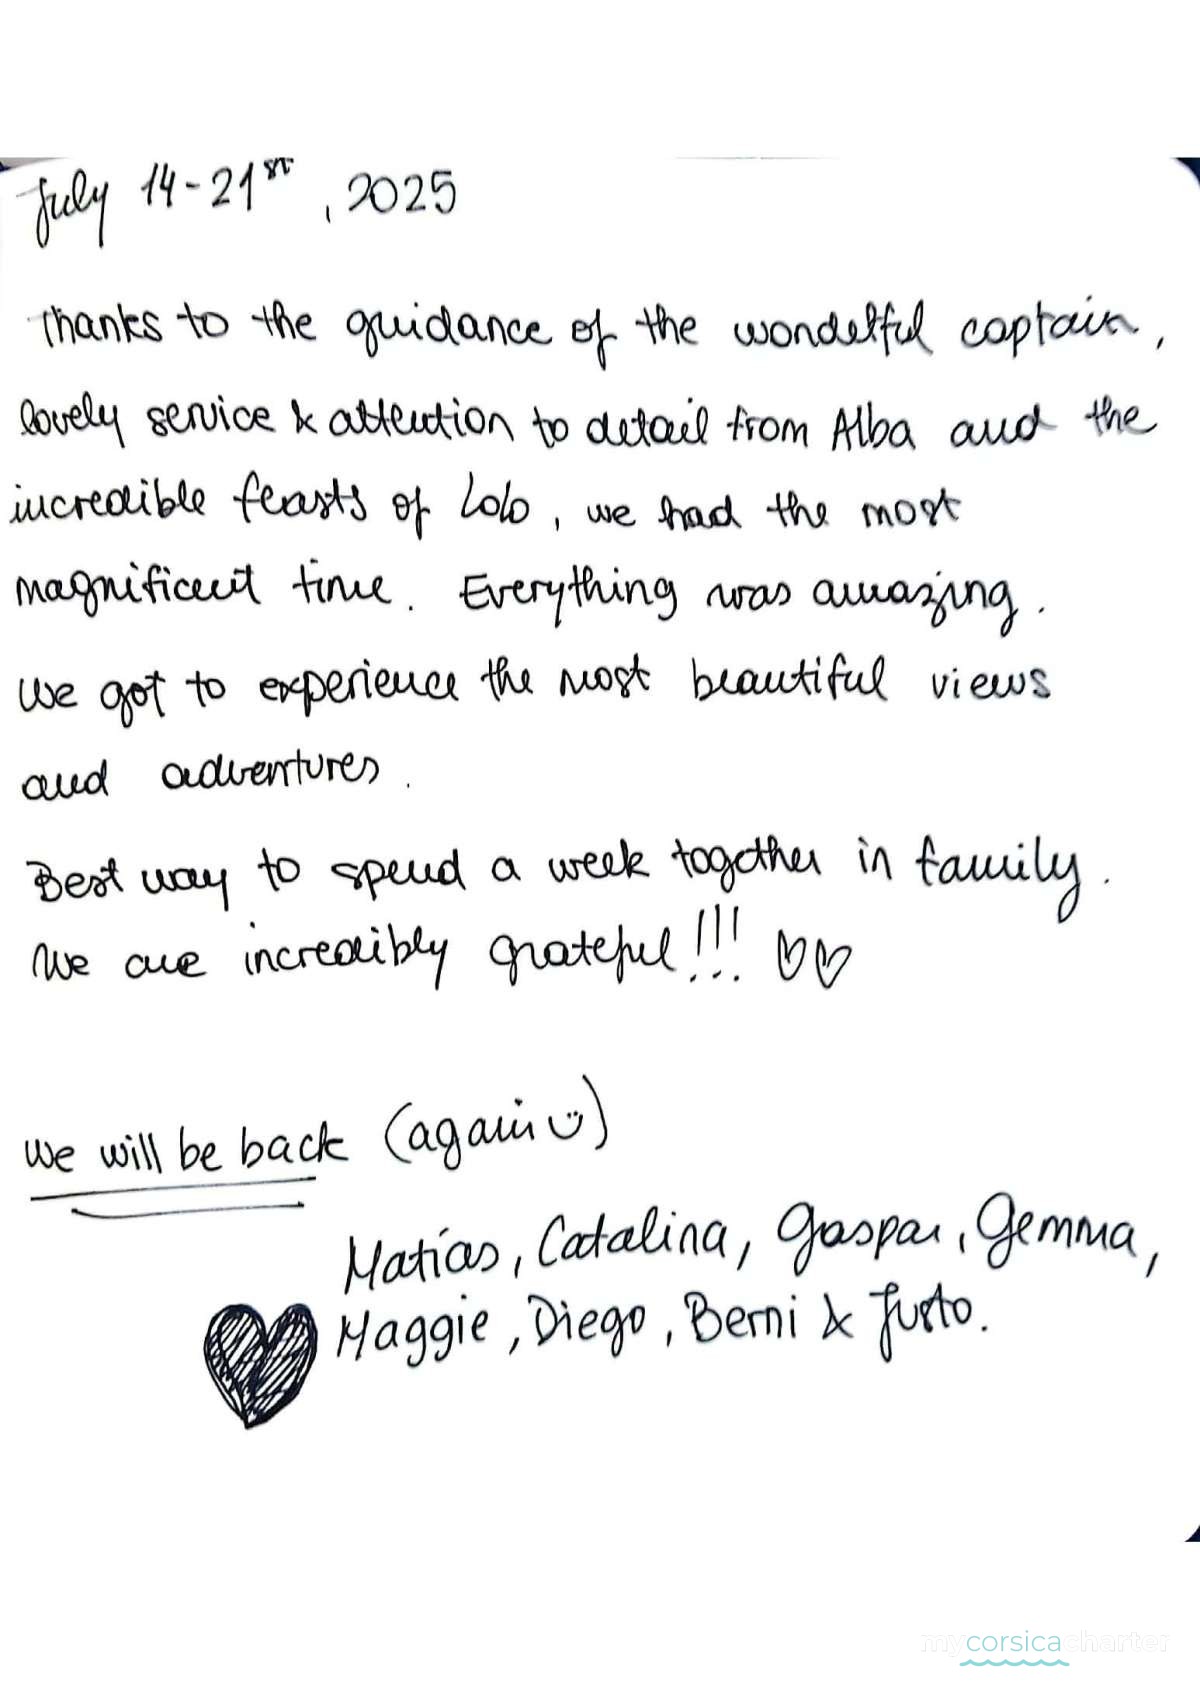 July 14-21st, 2025
Thanks to the guidance of the wonderful captain,
lovely service & attention to detail from Alba and the
incredible feasts of Lolo, we had the most
magnificent time. Everything was amazing.
We got to experience the most beautiful views
and adventures.
Best way to spend a week together in family.
We are incredibly grateful!!! ♡♡
We will be back (again ☺)
Matías, Catalina, Gaspar, Gemma,
Maggie, Diego, Berni & Justo.
mycorsicacharter